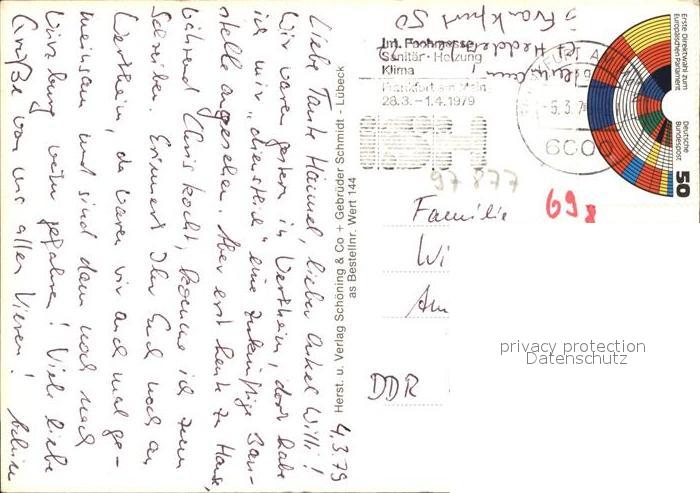 4.3.79
Liebe Tante Hannel, lieber Onkel Willi!
Wir waren gestern in Wertheim, dort habe
ich mir "dienstlich" eine zukünftige Bau-
stelle angesehen. Aber erst heute zu Hause,
während Chris kocht, komme ich zum
Schreiben. Erinnert Ihr Euch noch an
Wertheim, da waren wir auch mal ge-
meinsam und sind dann noch nach
Würzburg weiter gefahren! Viele liebe
Grüße von uns allen Vieren!
Frankfurt 50
Herst. u. Verlag Schöning & Co + Gebrüder Schmidt - Lübeck
as Bestellnr. Wert 144
Int. Fachmesse
Sanitär - Heizung
Klima
Frankfurt am Main
28.3. - 1.4.1979
FURT AM
-5.3.7
600
Erste Direktwahl zum
Europäischen Parlament
Deutsche
Bundespost
50
97 877
69
Familie
Wi
Am
DDR
privacy protection
Datenschutz